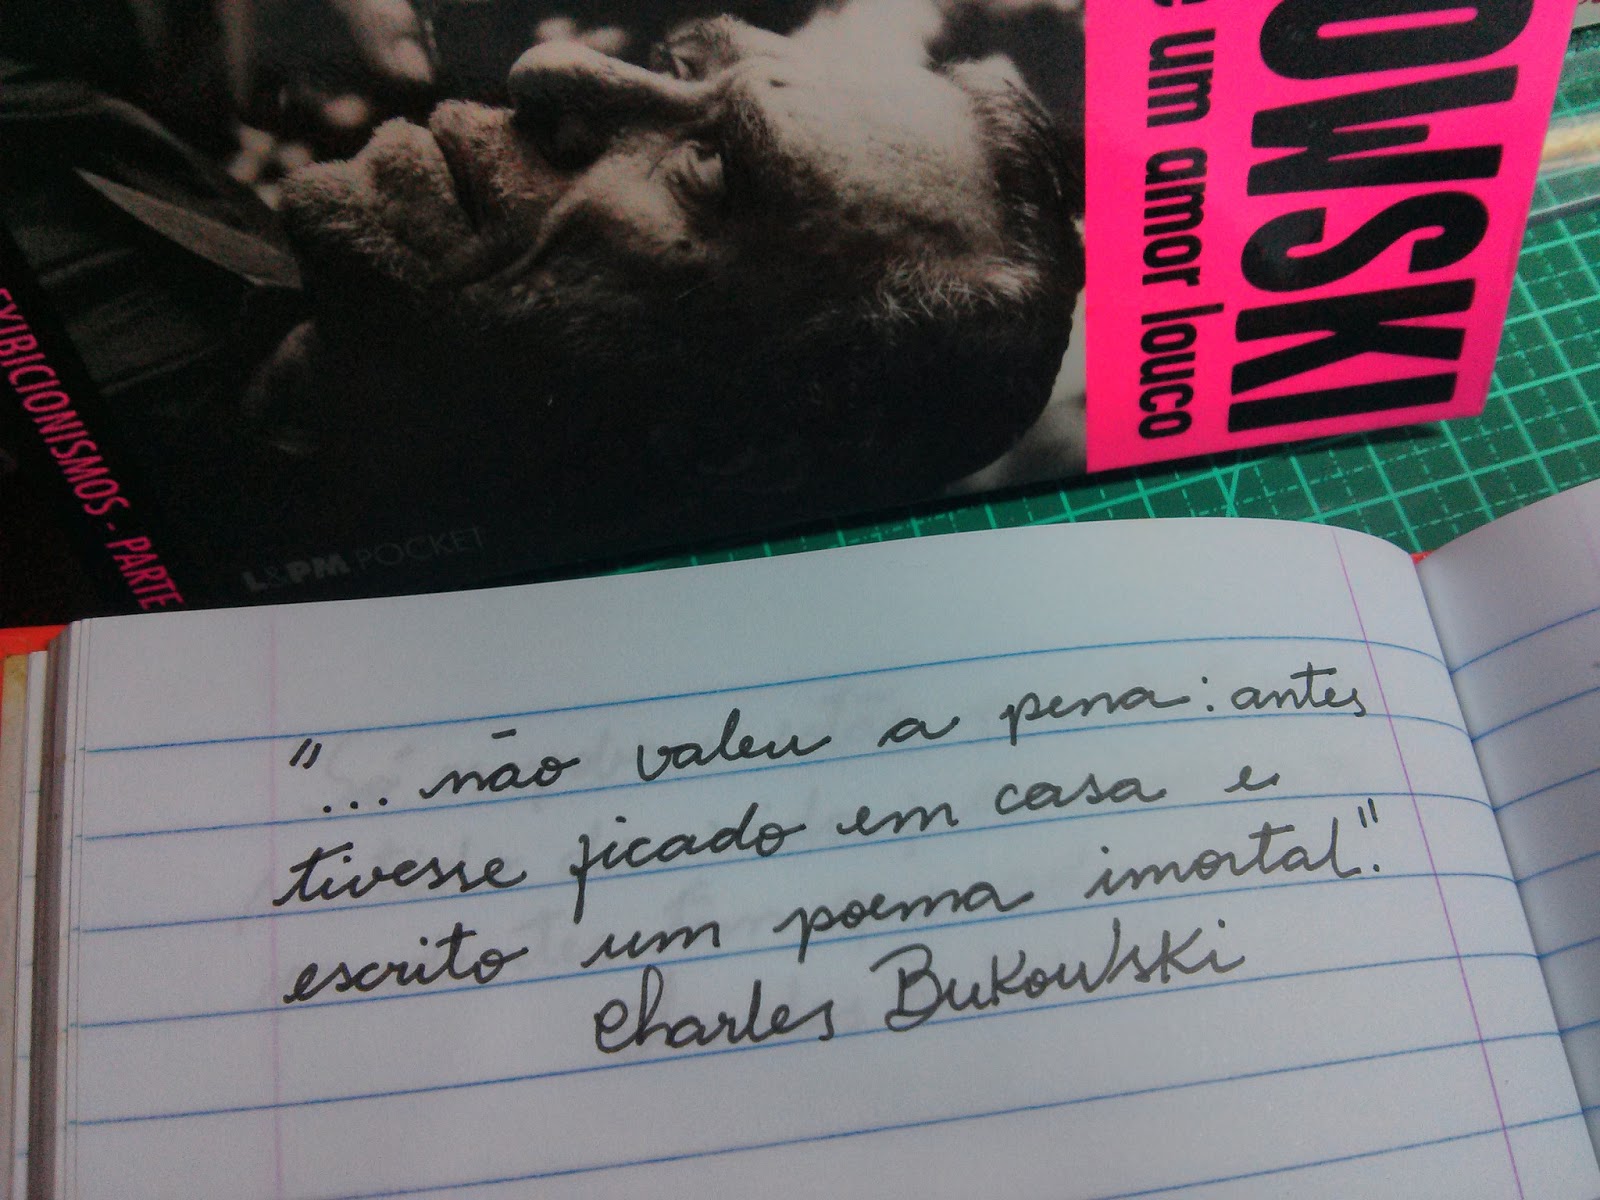 OWSKI
e um amor louco
EXIBICIONISMOS - PARTE
L&PM POCKET
"... não valeu a pena: antes
tivesse ficado em casa e
escrito um poema imortal."
Charles Bukowski